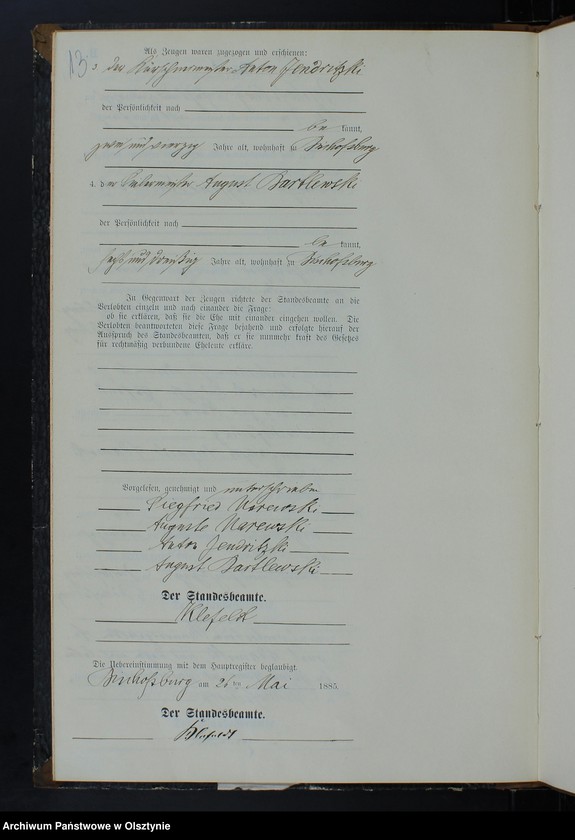 13
Als Zeugen waren zugezogen und erschienen:
3. der Kürschnermeister Anton Jendritzki
der Persönlichkeit nach
be kannt,
zwei und vierzig Jahre alt, wohnhaft in Bischofsburg
4. der August Bartlewski
der Persönlichkeit nach
be kannt,
sechs und dreißig Jahre alt, wohnhaft in Bischofsburg
In Gegenwart der Zeugen richtete der Standesbeamte an die
Verlobten einzeln und nach einander die Frage:
ob sie erklären, daß sie die Ehe mit einander eingehen wollen. Die
Verlobten beantworteten diese Frage bejahend und erfolgte hierauf der
Ausspruch des Standesbeamten, daß er sie nunmehr kraft des Gesetzes
für rechtmäßig verbundene Eheleute erkläre.
Vorgelesen, genehmigt und unterschrieben
Siegfried Narewski
Auguste Narewski
Anton Jendritzki
August Bartlewski
Der Standesbeamte.
Klefeld
Die Uebereinstimmung mit dem Hauptregister beglaubigt.
Bischofsburg am 26ten Mai 1885.
Der Standesbeamte.
Klefeld
Archiwum Państwowe w Olsztynie